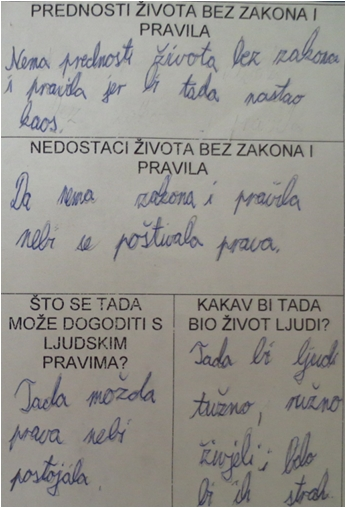 PREDNOSTI ŽIVOTA BEZ ZAKONA I
PRAVILA
Nema prednosti života bez zakona
i pravila jer bi tada nastao
kaos.
NEDOSTACI ŽIVOTA BEZ ZAKONA I
PRAVILA
Da nema zakona i pravila
nebi se poštivala prava.
ŠTO SE TADA
MOŽE DOGODITI S
LJUDSKIM
PRAVIMA?
Tada možda
prava nebi
postojala.
KAKAV BI TADA
BIO ŽIVOT LJUDI?
Tada bi ljudi
tužno, ružno
živjeli i bilo
bi ih strah.